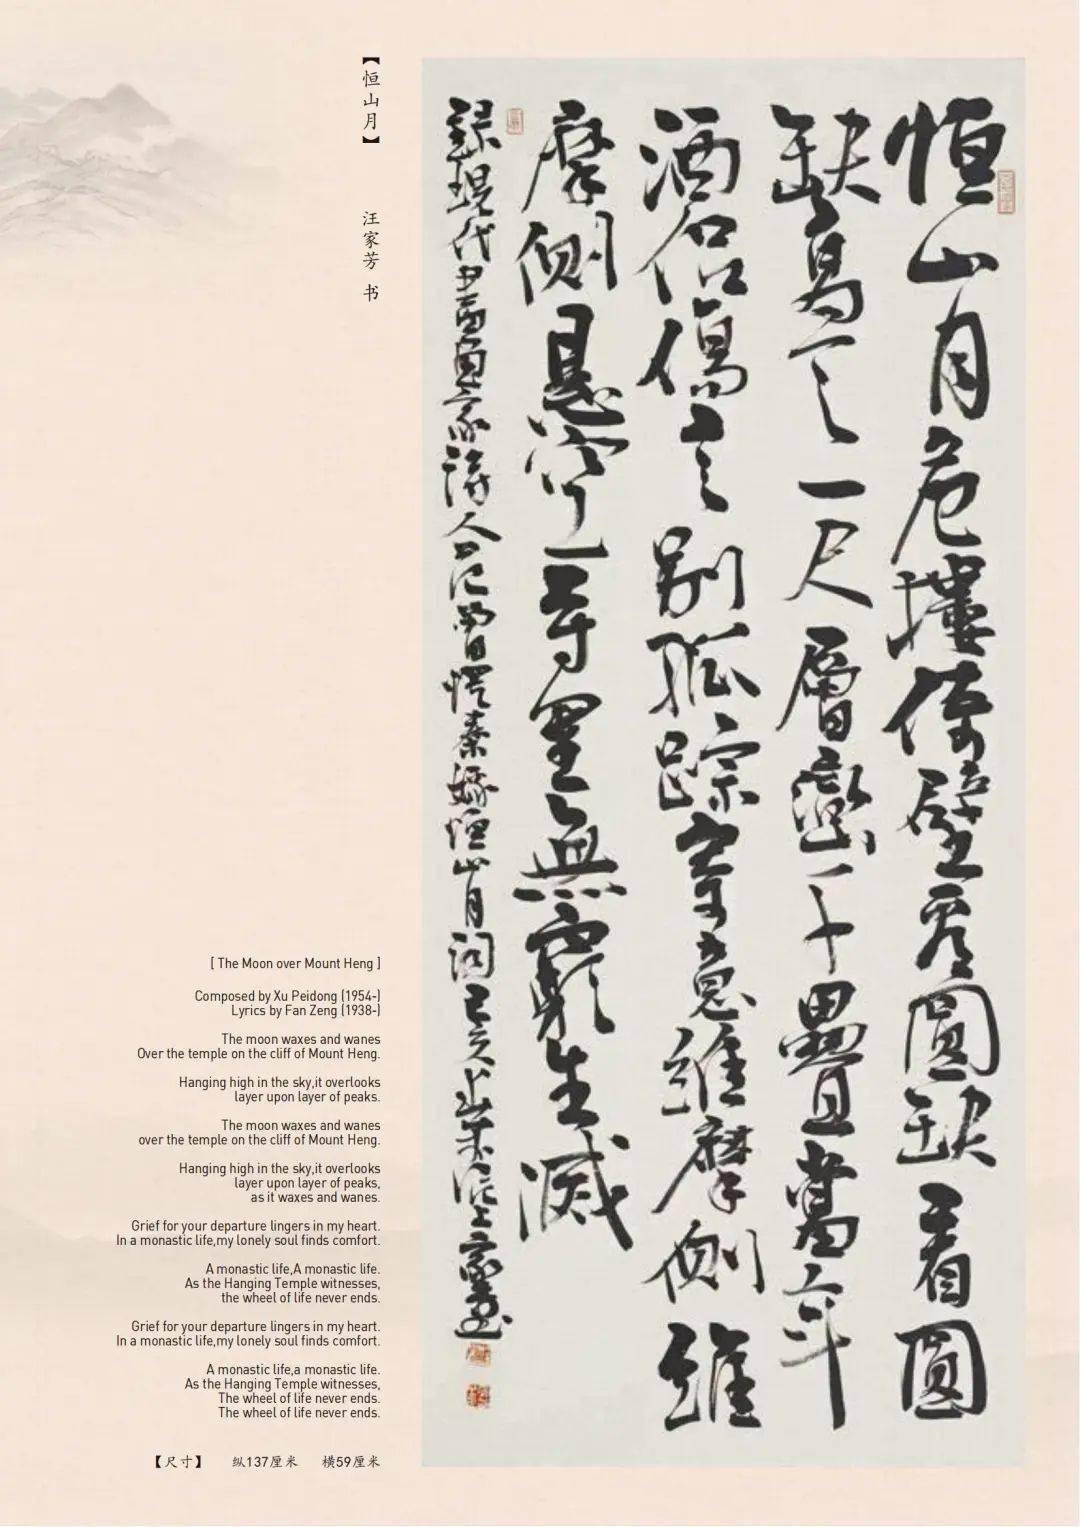 【恒山月】
汪家芳 书
恒山月危樓倚壁看圓缺看圓
缺高天一尺層巒千疊當年
酒傷別孤踪寄意維摩側維
摩側懸空一寺無窮生滅
録現代書畫家詩人范曾憶秦娥恒山月詞己亥
[ The Moon over Mount Heng ]
Composed by Xu Peidong (1954-)
Lyrics by Fan Zeng (1938-)
The moon waxes and wanes
Over the temple on the cliff of Mount Heng.
Hanging high in the sky,it overlooks
layer upon layer of peaks.
The moon waxes and wanes
over the temple on the cliff of Mount Heng.
Hanging high in the sky,it overlooks
layer upon layer of peaks,
as it waxes and wanes.
Grief for your departure lingers in my heart.
In a monastic life,my lonely soul finds comfort.
A monastic life,A monastic life.
As the Hanging Temple witnesses,
the wheel of life never ends.
Grief for your departure lingers in my heart.
In a monastic life,my lonely soul finds comfort.
A monastic life,a monastic life.
As the Hanging Temple witnesses,
The wheel of life never ends.
The wheel of life never ends.
【尺寸】 纵137厘米 横59厘米